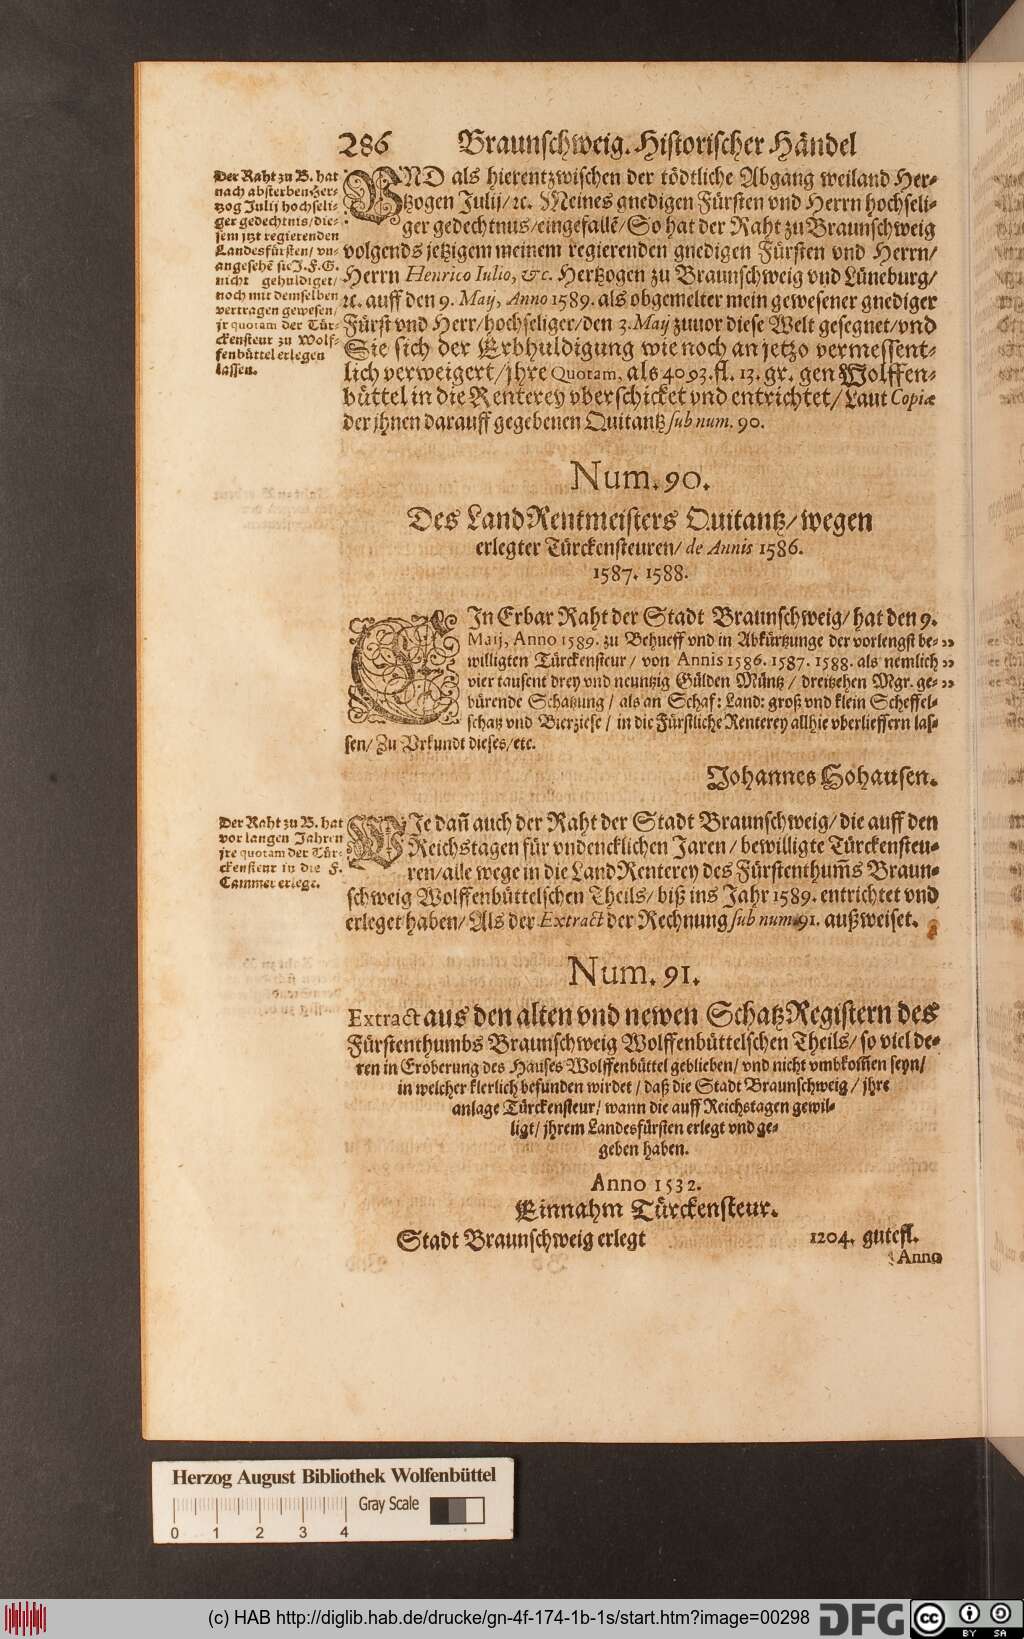 286 Braunschweig. Historischer Händel
Der Raht zu B. hat
nach absterben Her-
tzog Julij hochseli-
ger gedechtnis/ die-
sem jtzt regierenden
Landesfürsten/ vn-
angesehē sie J. F. G.
nicht gehuldiget/
noch mit demselben
vertragen gewesen/
jr quotam der Tür-
ckensteur zu Wolf-
fenbüttel erlegen
lassen.
VND als hierentzwischen der tödtliche Abgang weiland Her-
tzogen Julij/ ꝛc. Meines gnedigen Fürsten vnd Herrn hochseli-
ger gedechtnus/ eingefallē/ So hat der Raht zu Braunschweig
volgends jetzigem meinem regierenden gnedigen Fürsten vnd Herrn/
Herrn Henrico Iulio, &c. Hertzogen zu Braunschweig vnd Lüneburg/
ꝛc. auff den 9. Maij, Anno 1589. als obgemelter mein gewesener gnediger
Fürst vnd Herr/ hochseliger/ den 3. Maij zuuor diese Welt gesegnet/ vnd
Sie sich der Erbhuldigung wie noch an jetzo vermessent-
lich verweigert/ jhre Quotam, als 4093. fl. 13. gr. gen Wolffen-
büttel in die Renterey vberschicket vnd entrichtet/ Laut Copiæ
der jhnen darauff gegebenen Quitantz sub num. 90.
Num. 90.
Des LandRentmeisters Quitantz/ wegen
erlegter Türckensteuren/ de Annis 1586.
1587. 1588.
EIn Erbar Raht der Stadt Braunschweig/ hat den 9.
Maij, Anno 1589. zu Behueff vnd in Abkürtzunge der vorlengst be- „
willigten Türckensteur / von Annis 1586. 1587. 1588. als nemlich „
vier tausent drey vnd neuntzig Gülden Müntz / dreitzehen Mgr. ge- „
bürende Schatzung / als an Schaf: Land: groß vnd klein Scheffel-
schatz vnd Bierziese / in die Fürstliche Renterey allhie vberlieffern las-
sen/ Zu Vrkundt dieses/ etc.
Johannes Hohausen.
Der Raht zu B. hat
vor langen Jahren
jre quotam der Tür-
ckensteur in die F.
Cammer erlege.
WIe dañ auch der Raht der Stadt Braunschweig/ die auff den
Reichstagen für vndencklichen Jaren / bewilligte Türckensteu-
ren/ alle wege in die LandRenterey des Fürstenthum̄s Braun-
schweig Wolffenbüttelschen Theils/ biß ins Jahr 1589. entrichtet vnd
erleget haben/ Als der Extract der Rechnung sub num. 91. außweiset.
Num. 91.
Extract aus den alten vnd newen SchatzRegistern des
Fürstenthumbs Braunschweig Wolffenbüttelschen Theils/ so viel de-
ren in Eroberung des Hauses Wolffenbüttel geblieben/ vnd nicht vmbkom̄en seyn/
in welcher klerlich befunden wirdet / daß die Stadt Braunschweig / jhre
anlage Türckensteur/ wann die auff Reichstagen gewil-
ligt/ jhrem Landesfürsten erlegt vnd ge-
geben haben.
Anno 1532.
Einnahm Türckensteur.
Stadt Braunschweig erlegt 1204. gute fl.
Anno
Herzog August Bibliothek Wolfenbüttel
Gray Scale
0 1 2 3 4
(c) HAB http://diglib.hab.de/drucke/gn-4f-174-1b-1s/start.htm?image=00298
DFG
cc BY SA